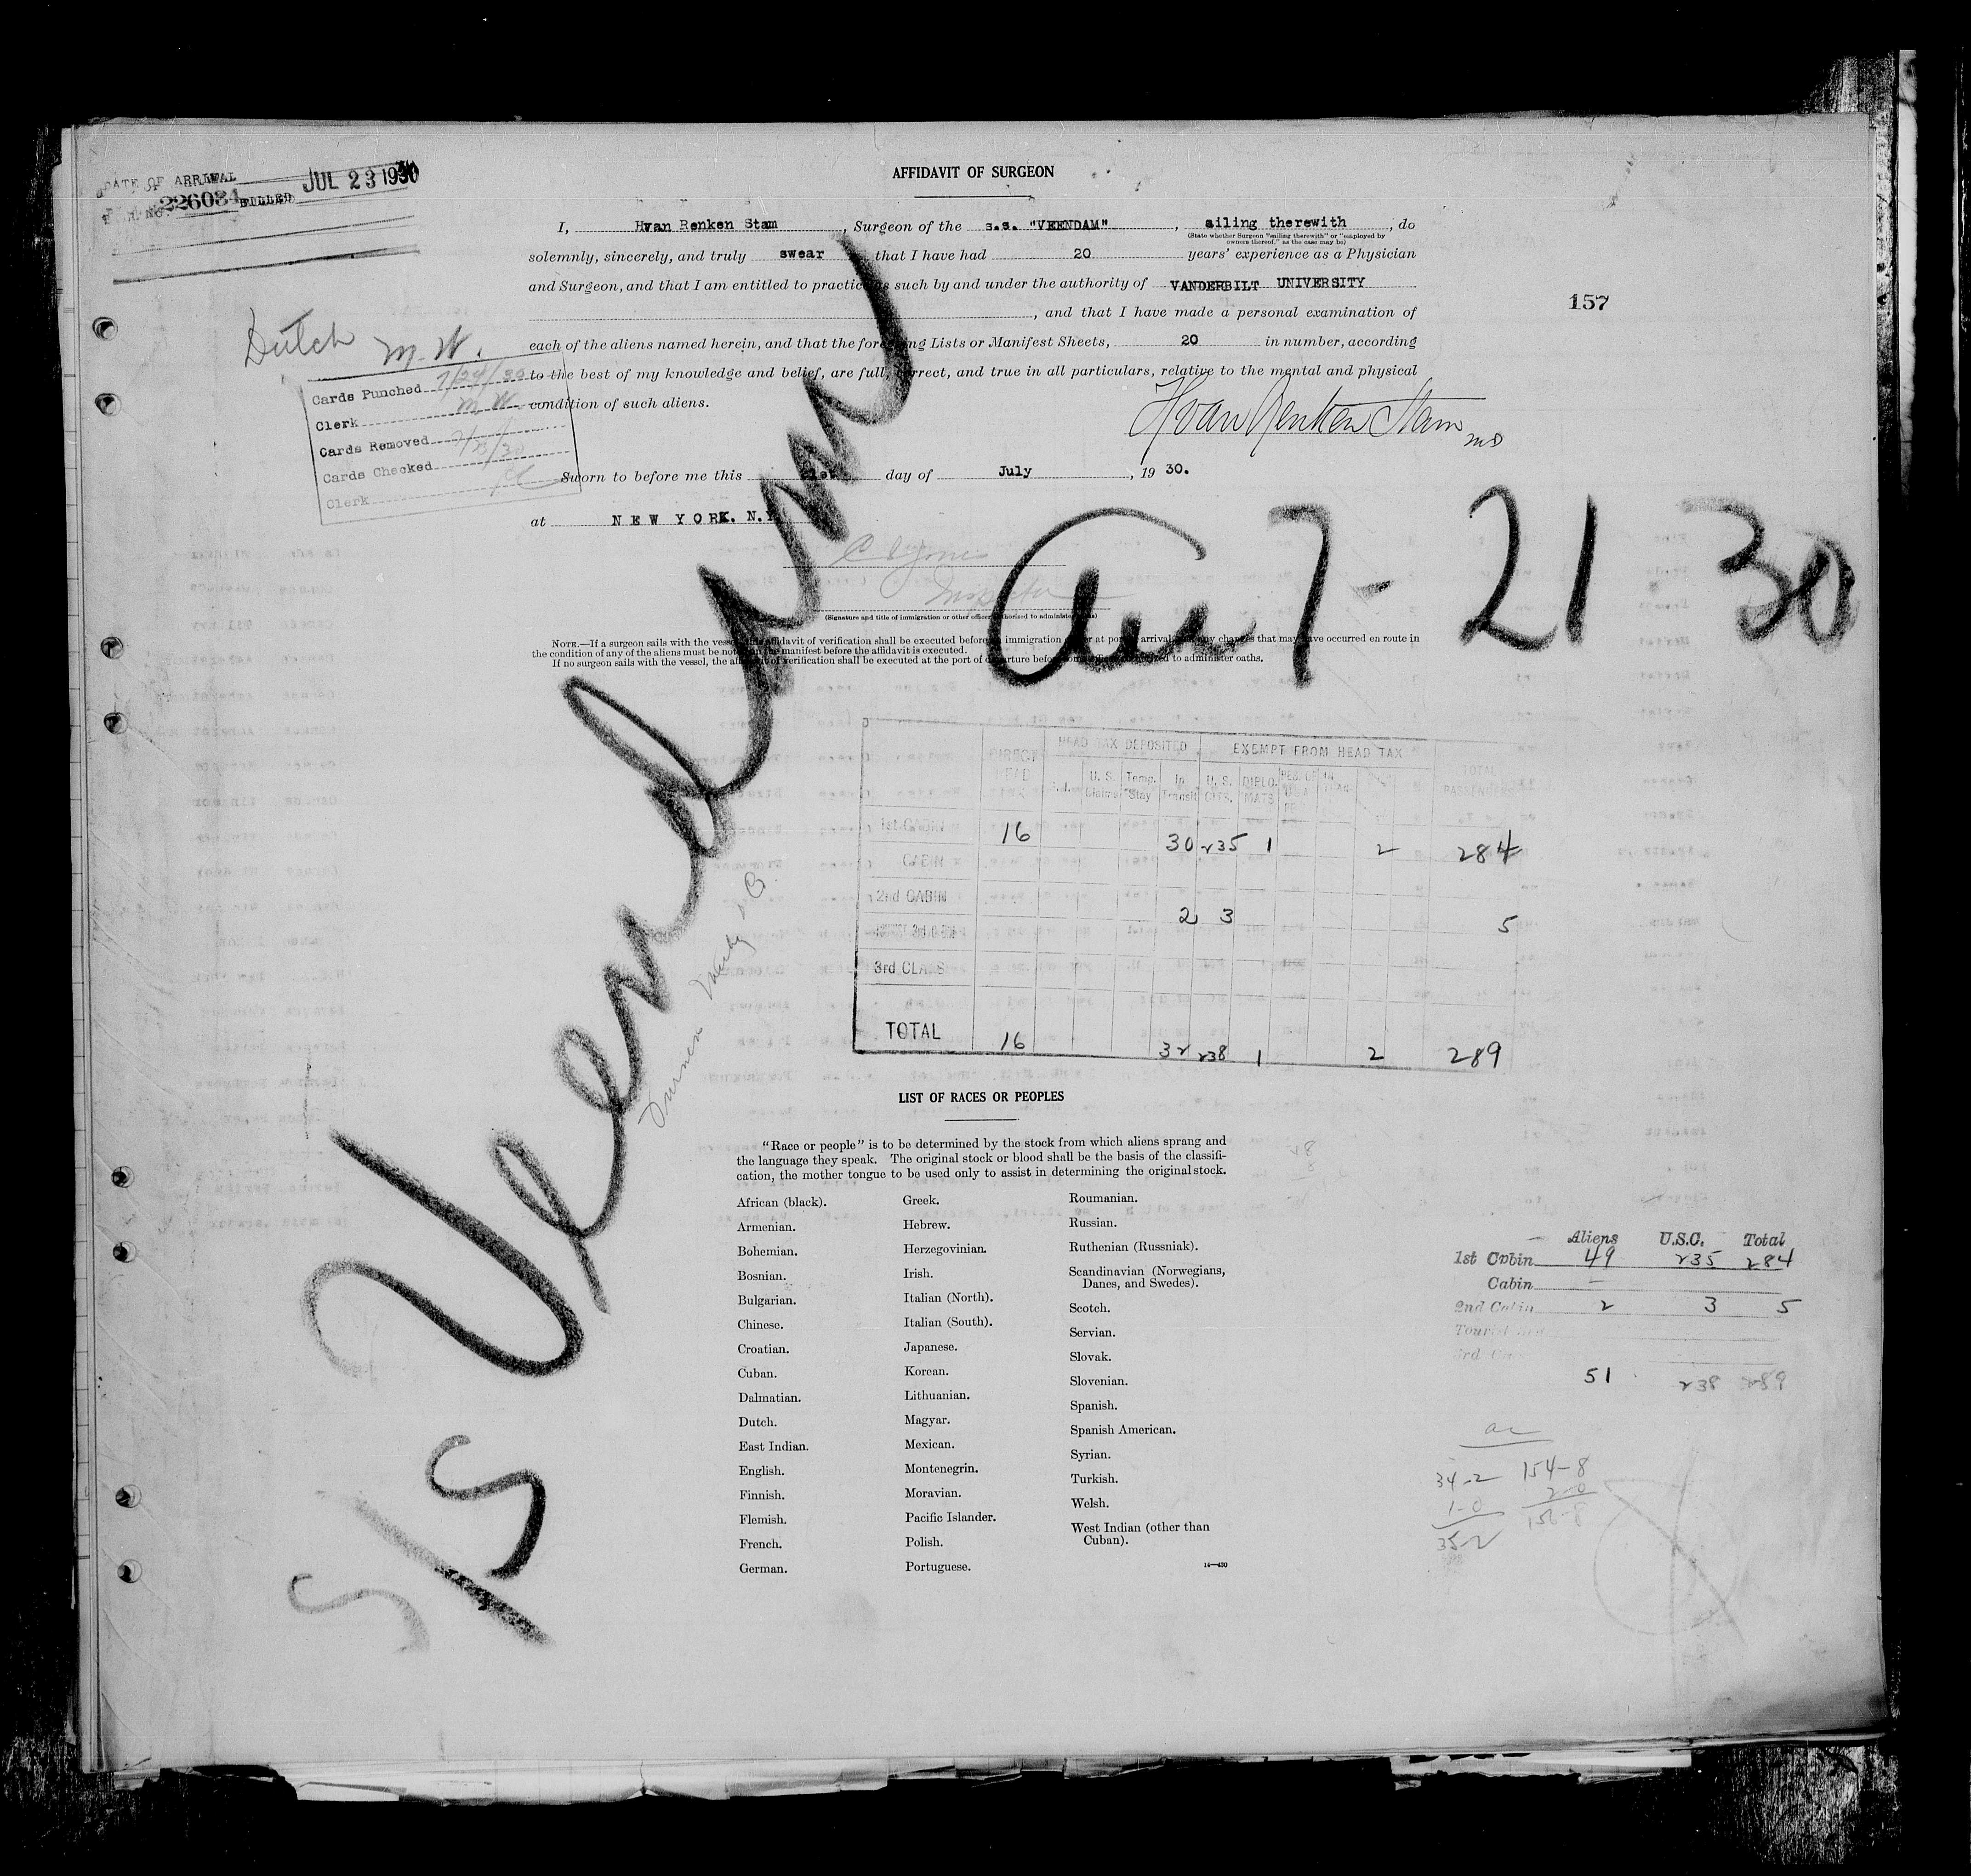 DATE OF ARRIVAL
226034 FILLED JUL 23 1930
157
Dutch M.W.
Cards Punched 7/24/30
Clerk M W
Cards Removed
Cards Checked
Clerk
AFFIDAVIT OF SURGEON
I, Hvan Renken Stam, Surgeon of the s.s. "VEENDAM", ailing therewith, do
(State whether Surgeon "sailing therewith" or "employed by
owners thereof," as the case may be)
solemnly, sincerely, and truly swear that I have had 20 years' experience as a Physician
and Surgeon, and that I am entitled to practice as such by and under the authority of VANDERBILT UNIVERSITY
, and that I have made a personal examination of
each of the aliens named herein, and that the foregoing Lists or Manifest Sheets, 20 in number, according
to the best of my knowledge and belief, are full, correct, and true in all particulars, relative to the mental and physical
condition of such aliens.
Hvan Renken Stam MD
Sworn to before me this 21st day of July, 19 30.
at NEW YORK. N.Y.
Inspector
(Signature and title of immigration or other officer authorized to administer oaths)
NOTE.—If a surgeon sails with the vessel, this affidavit of verification shall be executed before an immigration officer at port of arrival, and any changes that may have occurred en route in
the condition of any of the aliens must be noted on the manifest before the affidavit is executed.
If no surgeon sails with the vessel, the affidavit of verification shall be executed at the port of departure before an officer authorized to administer oaths.
S/S Veendam
Arr 7-21 30
HEAD TAX DEPOSITED EXEMPT FROM HEAD TAX
DIRECT HEAD U. S. Claims Temp. Stay In Transit U. S. CITS. DIPLOMATS TOTAL PASSENGERS
1st CABIN 16 30 235 1 2 284
CABIN
2nd CABIN 2 3 5
3rd CLASS
TOTAL 16 32 238 1 2 289
LIST OF RACES OR PEOPLES
"Race or people" is to be determined by the stock from which aliens sprang and
the language they speak. The original stock or blood shall be the basis of the classifi-
cation, the mother tongue to be used only to assist in determining the original stock.
African (black).
Armenian.
Bohemian.
Bosnian.
Bulgarian.
Chinese.
Croatian.
Cuban.
Dalmatian.
Dutch.
East Indian.
English.
Finnish.
Flemish.
French.
German.
Greek.
Hebrew.
Herzegovinian.
Irish.
Italian (North).
Italian (South).
Japanese.
Korean.
Lithuanian.
Magyar.
Mexican.
Montenegrin.
Moravian.
Pacific Islander.
Polish.
Portuguese.
Roumanian.
Russian.
Ruthenian (Russniak).
Scandinavian (Norwegians,
Danes, and Swedes).
Scotch.
Servian.
Slovak.
Slovenian.
Spanish.
Spanish American.
Syrian.
Turkish.
Welsh.
West Indian (other than
Cuban).
14—430
Aliens U.S.C. Total
1st Cabin 49 235 284
Cabin —
2nd Cabin 2 3 5
51 238 289
34-2 154-8
1-0 2-0
35-2 156-8